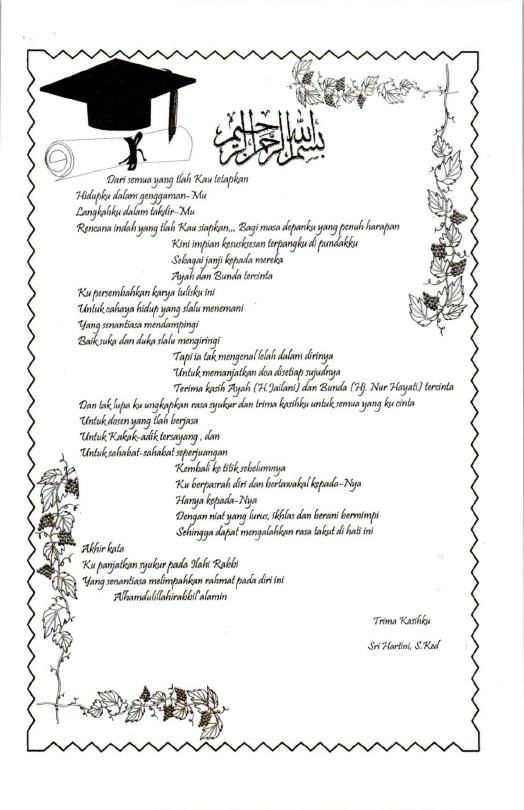 بسم الله الرحمن الرحيم
Dari semua yang tlah Kau tetapkan
Hidupku dalam genggaman-Mu
Langkahku dalam takdir-Mu
Rencana indah yang tlah Kau siapkan,,, Bagi masa depanku yang penuh harapan
Kini impian kesusksesan terpangku di pundakku
Sebagai janji kepada mereka
Ayah dan Bunda tercinta
Ku persembahkan karya tulisku ini
Untuk cahaya hidup yang slalu menemani
Yang senantiasa mendampingi
Baik suka dan duka slalu mengiringi
Tapi ia tak mengenal lelah dalam dirinya
Untuk memanjatkan doa disetiap sujudnya
Terima kasih Ayah (H Jailani) dan Bunda (Hj. Nur Hayati) tercinta
Dan tak lupa ku ungkapkan rasa syukur dan trima kasihku untuk semua yang ku cinta
Untuk dosen yang tlah berjasa
Untuk Kakak-adik tersayang , dan
Untuk sahabat-sahabat seperjuangan
Kembali ke titik sebelumnya
Ku berpasrah diri dan bertawakal kepada-Nya
Hanya kepada-Nya
Dengan niat yang lurus, ikhlas dan berani bermimpi
Sehingga dapat mengalahkan rasa takut di hati ini
Akhir kata
Ku panjatkan syukur pada Ilahi Rabbi
Yang senantiasa melimpahkan rahmat pada diri ini
Alhamdulillahirabbil'alamin
Trima Kasihku
Sri Hartini, S.Ked